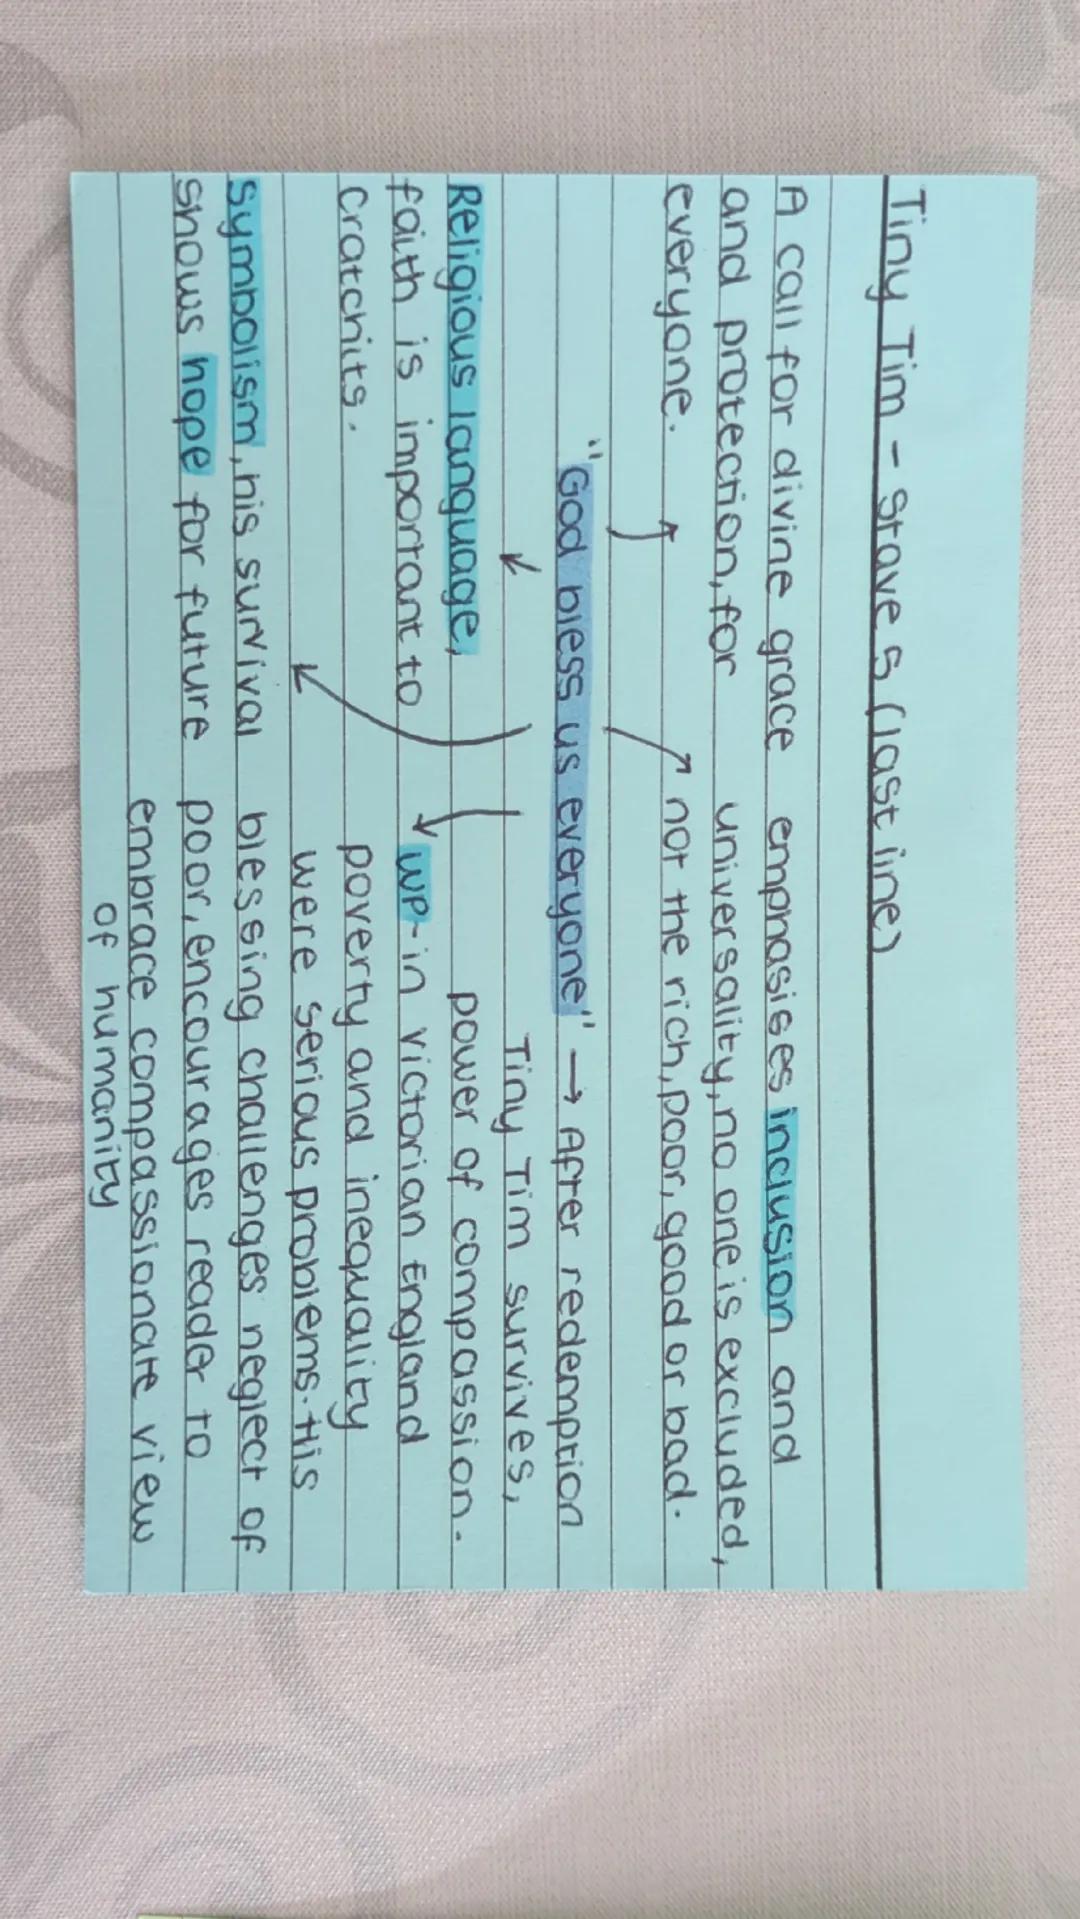 Tiny Tim - Stave 5 (last line)
A call for divine grace
and protection, for
everyone.
emphasises inclusion and
universality, no one is excluded,
not the rich, poor, good or bad.
"God bless us everyone" → After redemption
Tiny Tim survives,
power of compassion.
Religious language,
faith is important to
Cratchits.
Symbolism, his survival
shows hope for future
WP - in victorian England
poverty and inequality
were serious problems. His
blessing challenges neglect of
poor, encourages reader to
embrace compassionate view
of humanity